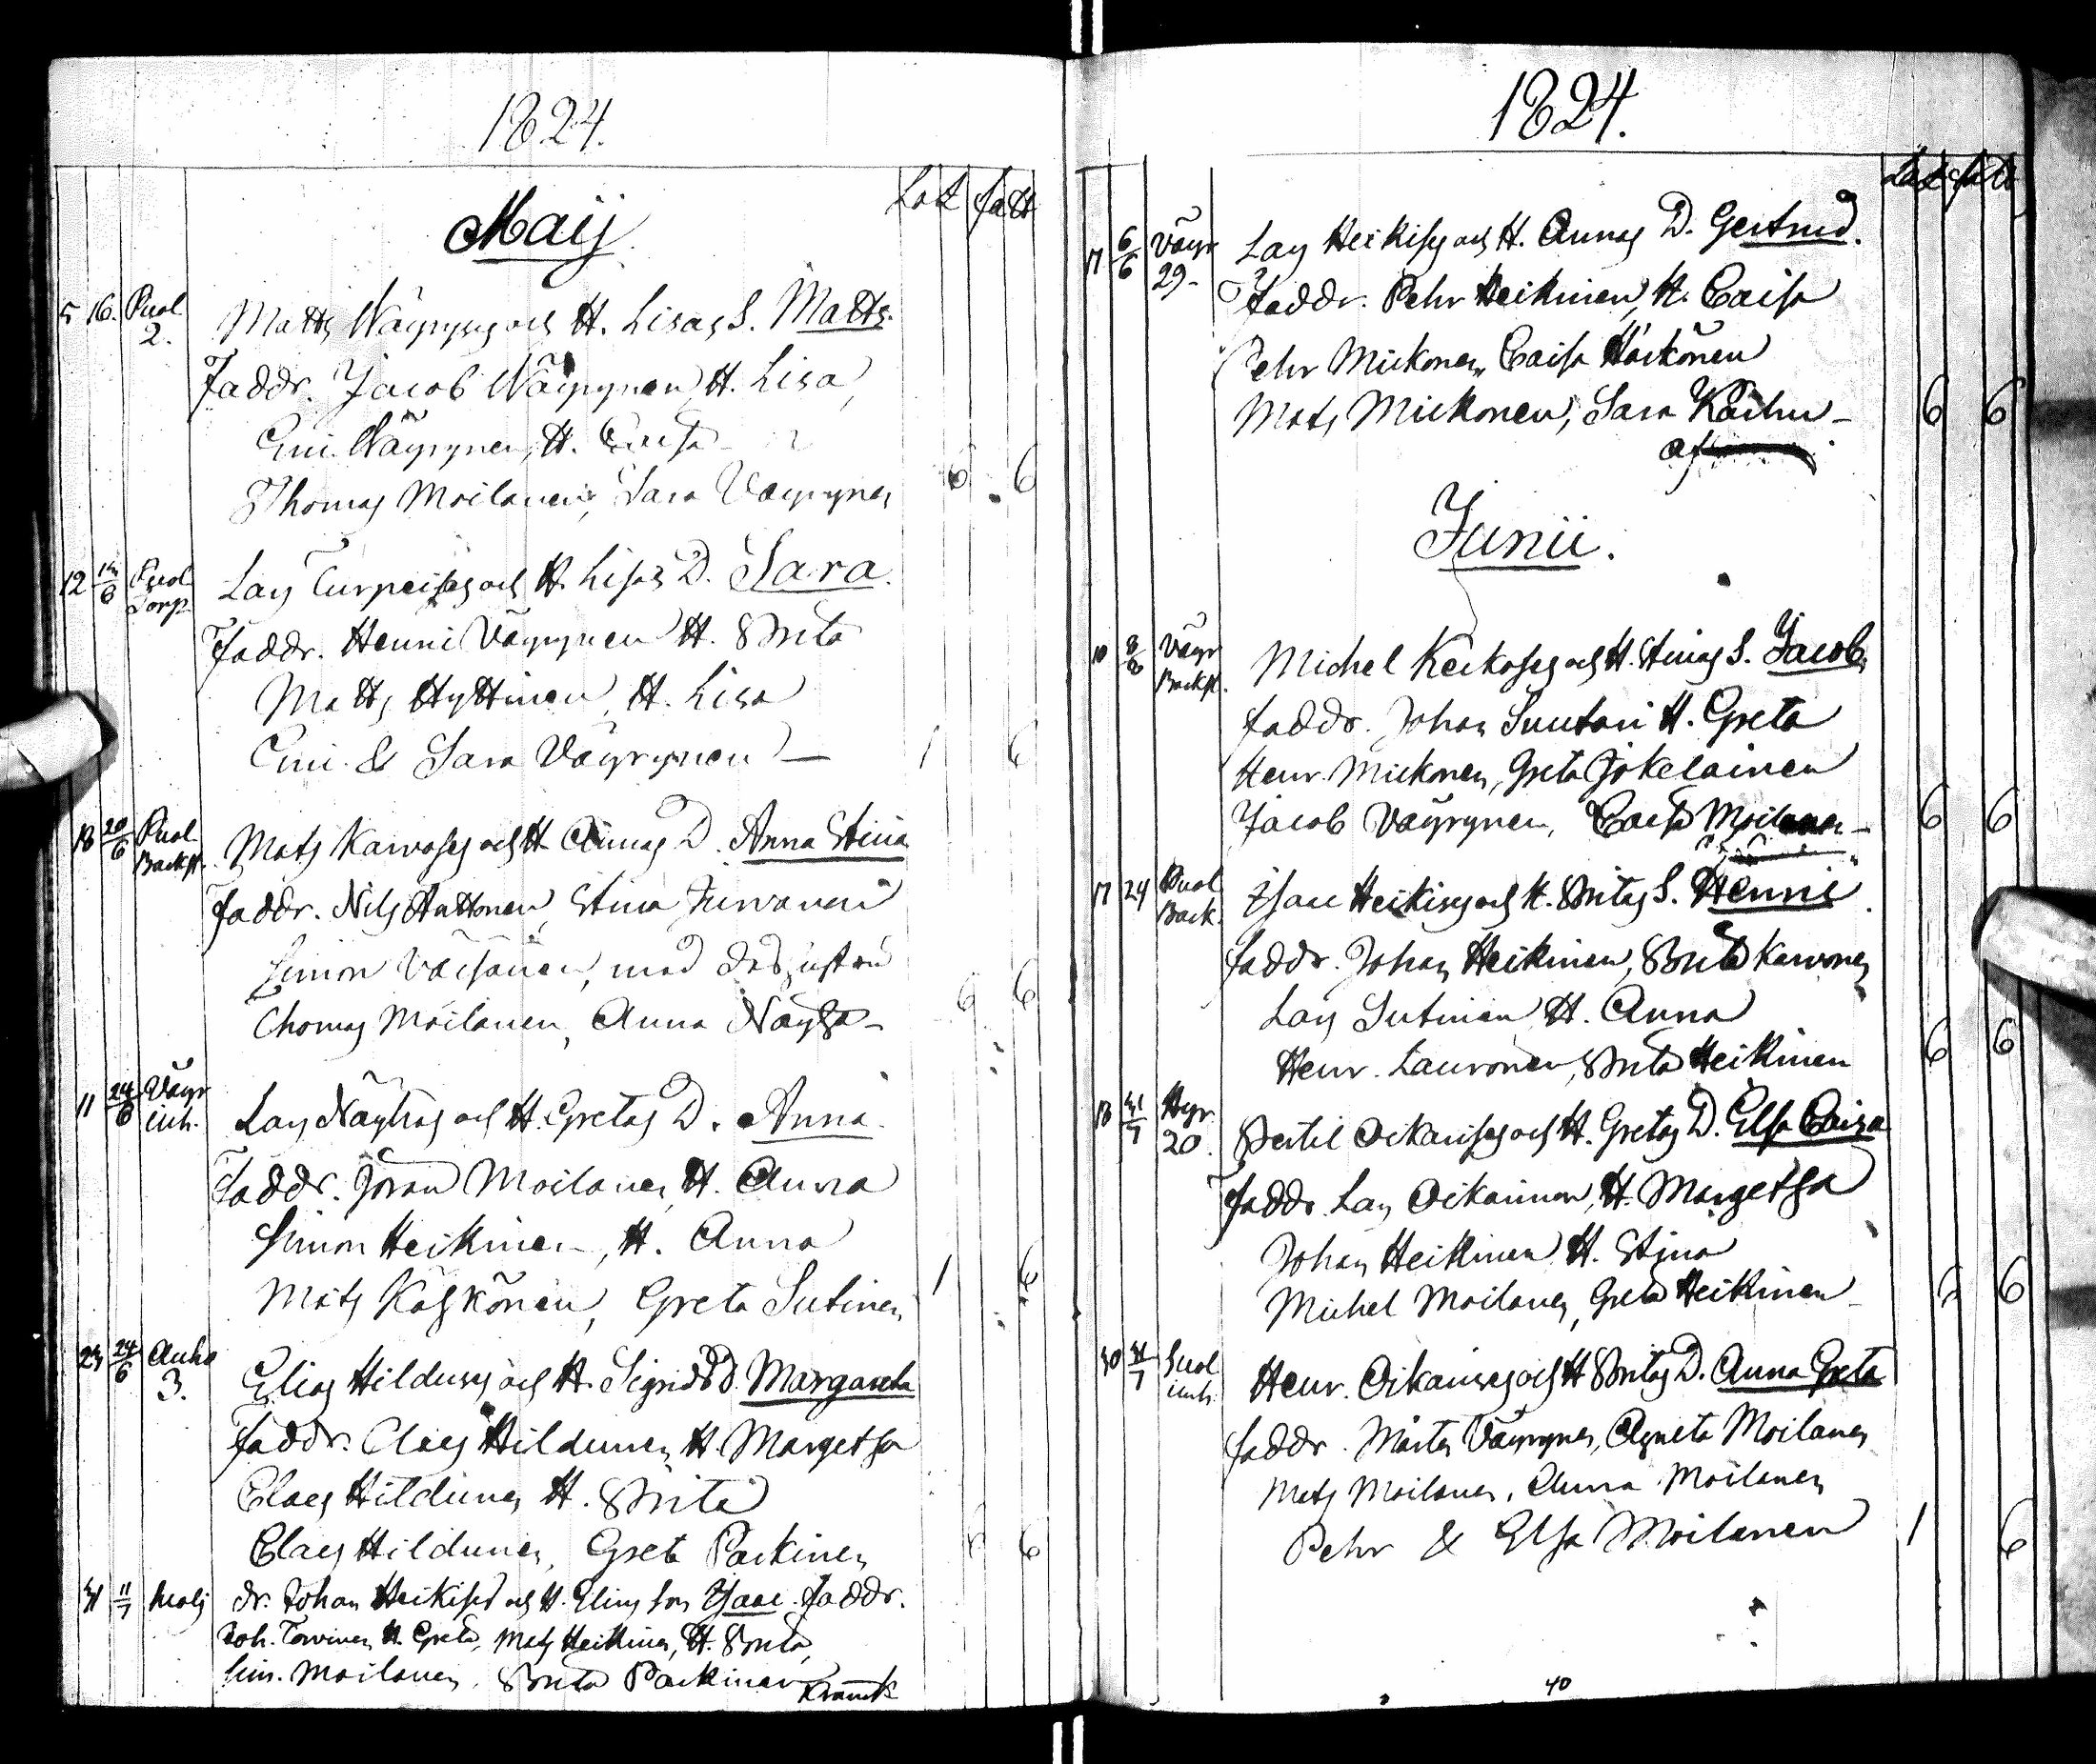 1824.
Maij
5 16. Puol 2. Matts Wäyrysens och H. Lisas S. Matts.
Faddr. Jacob Wäyrynen, H. Lisa,
Eric Wäyrynen, H. Caisa
Thomas Moilanen, Sara Väyrynen 6 6
12 13/6 Puol Torp. Lars Turpeises och H. Lisas D. Sara.
Faddr. Henric Väyrynen H. Brita
Matts Hyttinen, H. Lisa
Eric & Sara Väyrynen — 1 6
13 20/6 Puol Backst. Mats Karvoses och H Annas D. Anna Stina
Faddr. Nils Huttonen, Stina Juvonen
Simon Väisänen, med dess hustru
Thomas Moilanen, Anna Näyhä — 6 6
11 24/6 Väyr inh. Lars Näyhäs och H. Gretas D. Anna.
Faddr. Jöran Moilanen, H. Anna
Simon Heikinen, H. Anna
Mats Käskönen, Greta Sutinen 1 6
23 24/6 Auho 3. Elias Hildures och H. Sigrids D. Margareta
Faddr. Claes Hildunen H. Margetha
Claes Hildunen H. Brita
Claes Hildunen, Greta Parkinen 6 6
31 11/7 dr. Johan Heikises och H. Elins son Isaac. Faddr.
Joh. Torvinen H. Greta, Mats Heikinen, H. Brita,
Sim. Moilanen, Brita Parkinen
1824.
17 6/6 Väyr 29. Lars Heikises och H. Annas D. Gertrud.
Faddr. Pehr Heikinen, H. Caisa
Pehr Mickonen, Caisa Härkönen
Mats Mickonen, Sara Karhu — 6 6
Junii.
10 Väyr Backst. Michel Keckoses och H. Stinas S. Jacob.
Faddr. Johan Suutari H. Greta
Henr. Mickonen, Greta Jokelainen
Jacob Väyrynen, Caisa Moilanen — 6 6
17 24 Puol Back. Isac Heikises och H. Britas S. Henric.
Faddr. Johan Heikinen, Brita Karvonen
Lars Sutinen H. Anna
Henr. Lauronen, Brita Heikinen 6 6
13 Hyr. 20. Bertil Oikarises och H. Gretas D. Elsa Caisa
Faddr. Lars Oikarinen, H. Margetha
Johan Heikinen H. Stina
Michel Moilanen, Greta Heikinen 6 6
30 Puol inh. Henr. Oikarises och H Britas D. Anna Greta
Faddr. Mårten Väyrynen, Agneta Moilanen
Mats Moilanen, Anna Moilanen
Pehr & Elsa Moilanen 1 6
40